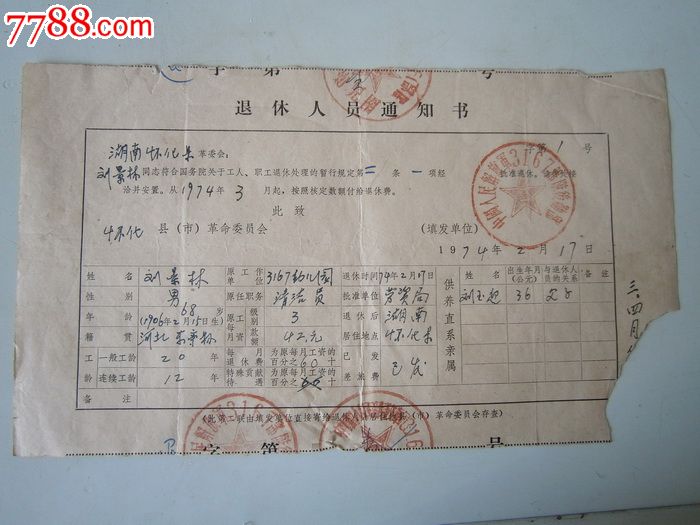 7788.com
字 第 号
退休人员通知书
字第 1 号
湖南怀化县革委会：
刘景林同志符合国务院关于工人、职工退休处理的暂行规定第二条一项经
批准退休。请你县接
洽并安置。从1974年3月起，按照核定数额付给退休费。
此致
怀化县（市）革命委员会 （填发单位）
中国人民解放军3167
1974年2月17日
姓名 刘景林 原工作单位 3167幼儿园 退休时间 74年2月17日 供养直系亲属 姓名 出生年月（公元） 与退休人员的关系 备注
性别 男 原任职务 清洁员 批准单位 劳资局 36 父子
年龄 68岁（1906年2月15日生） 原工级别 3 退休后居住地点 湖南怀化县
籍贯 河北 每月工资数额 42元
工龄 一般工龄 20年 每月退休费 为原每月工资的百分之60十 已发差旅费 已发
连续工龄 12年 特殊贡献待遇 为原每月工资的百分之十
备注
三.四月
（此第二联由填发单位直接寄给退休人员居住地县（市）革命委员会存查）
字第 号